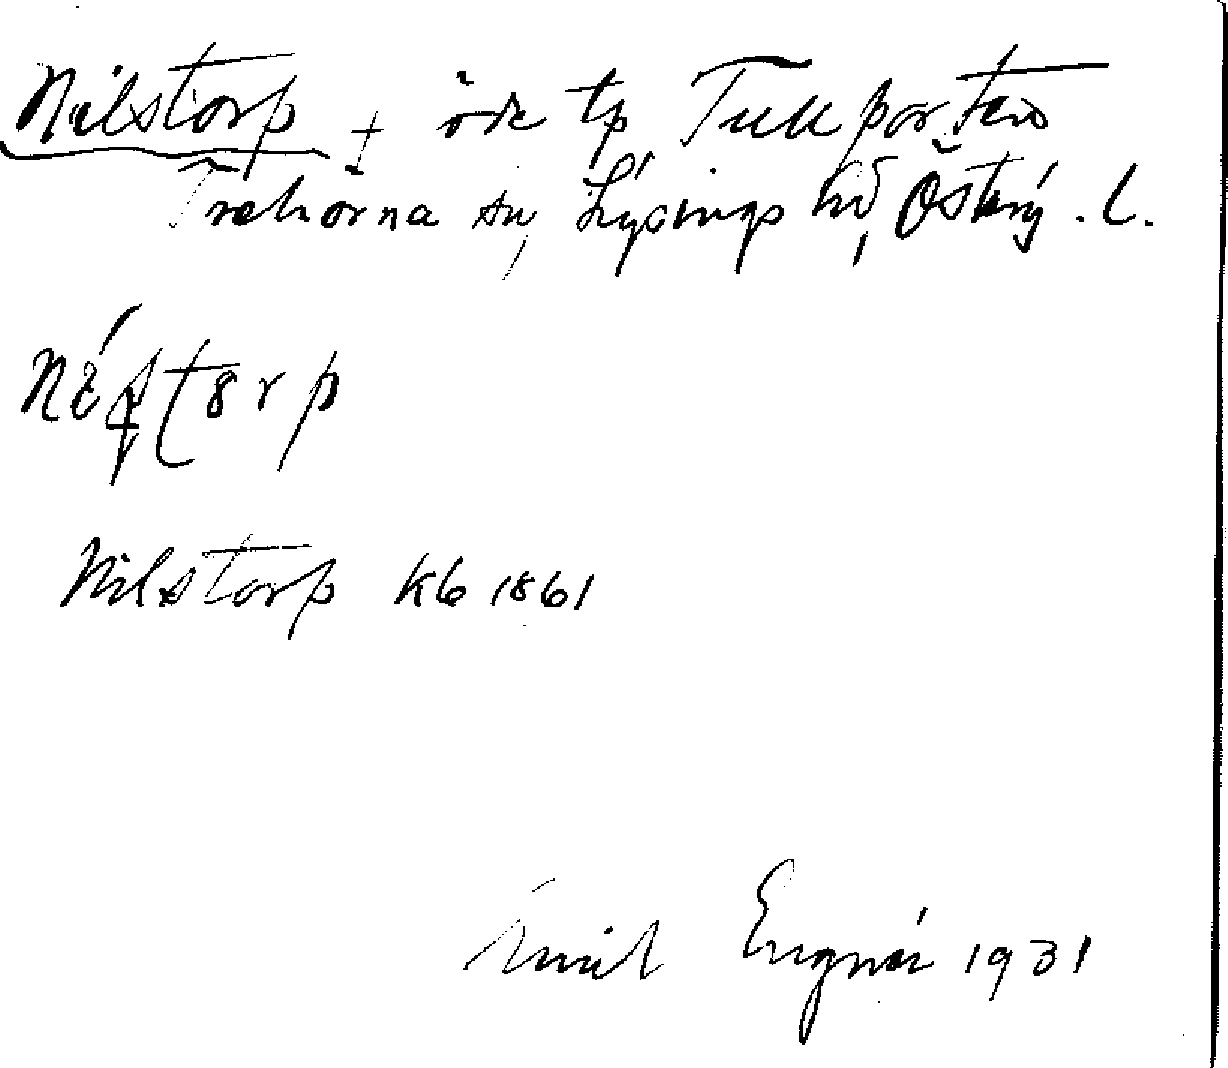 Nilstorp ± öde tp Tullporten
Trehörna sn, Lysings hd, Österg. L.
Nilstorp kb 1861
Emil Engnér 1931